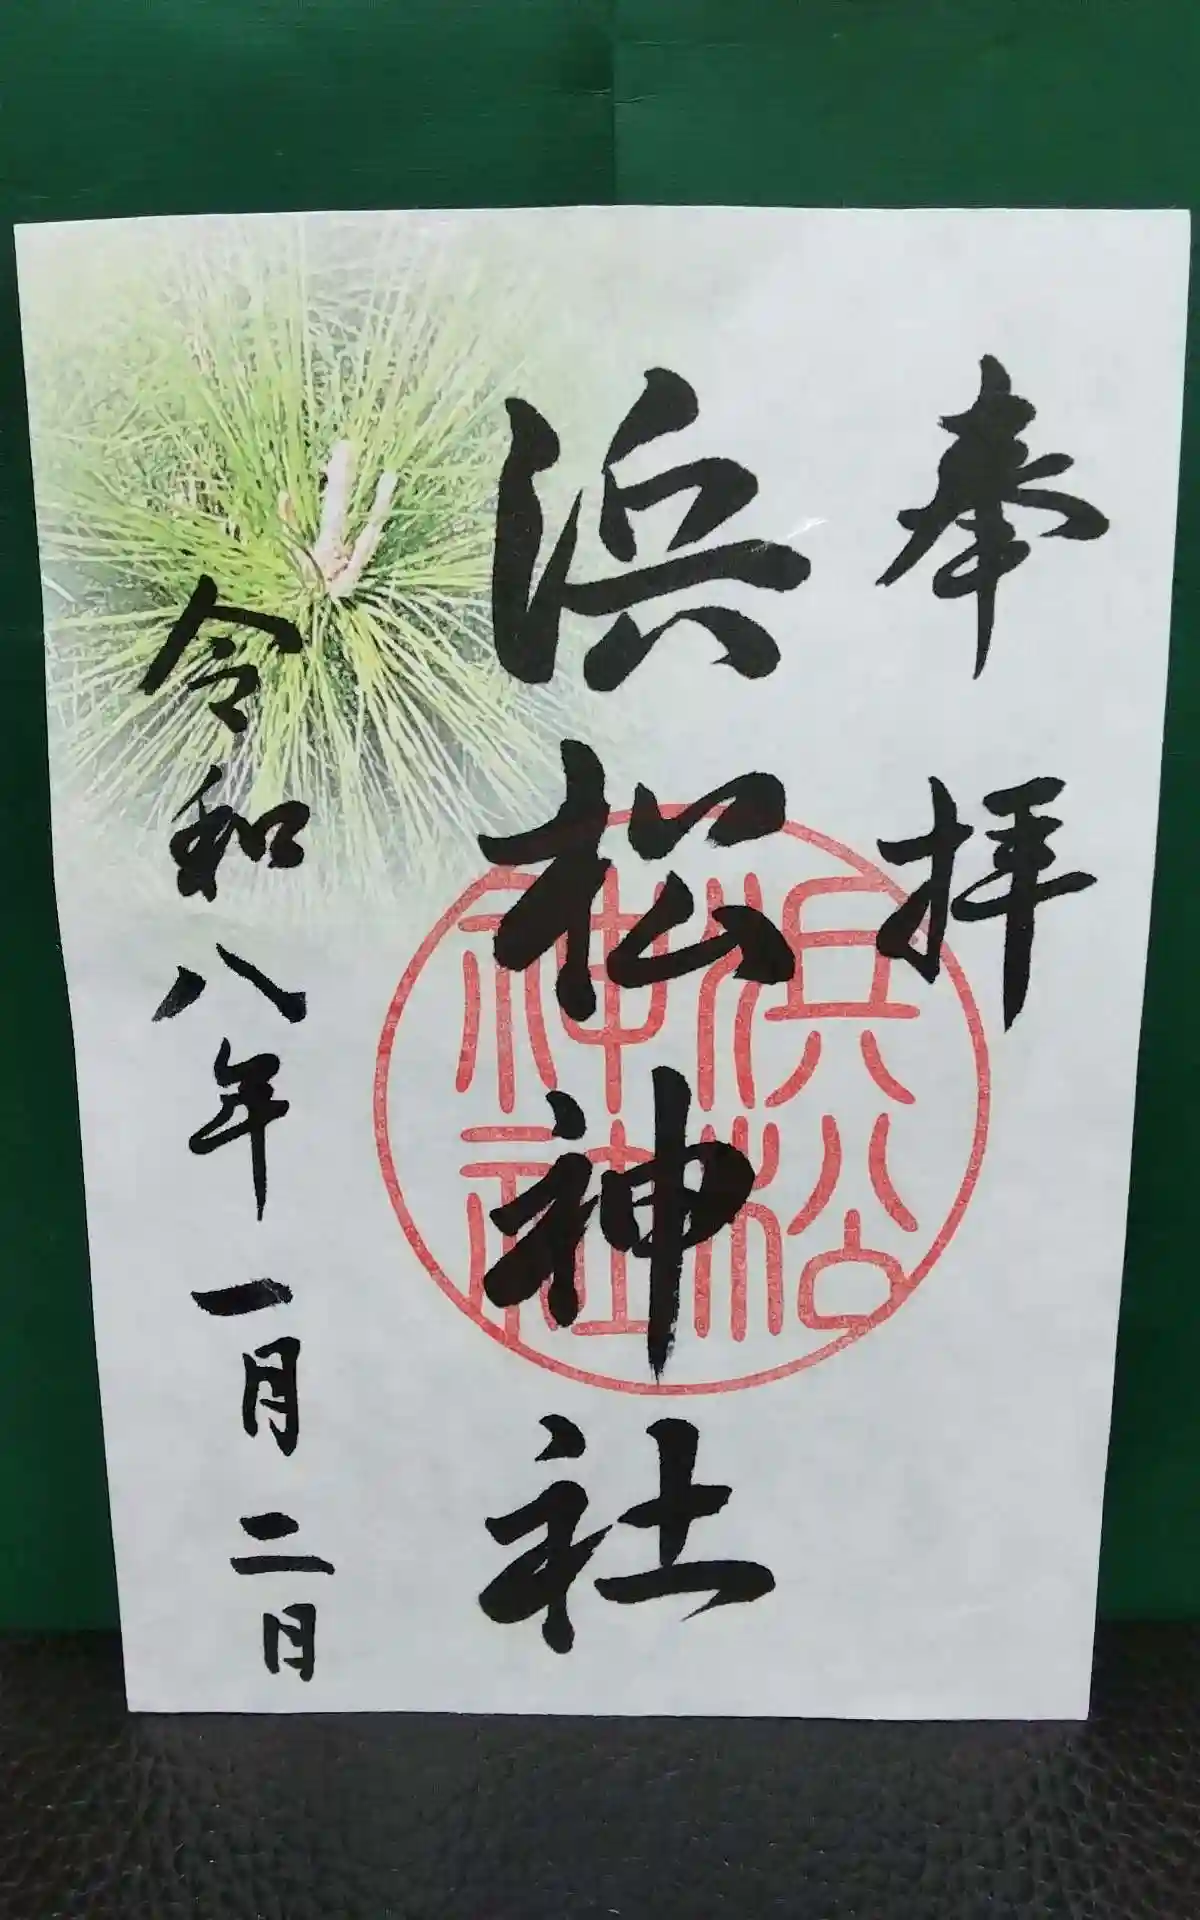 奉拝
浜松神社
浜松
神社
令和八年一月二日